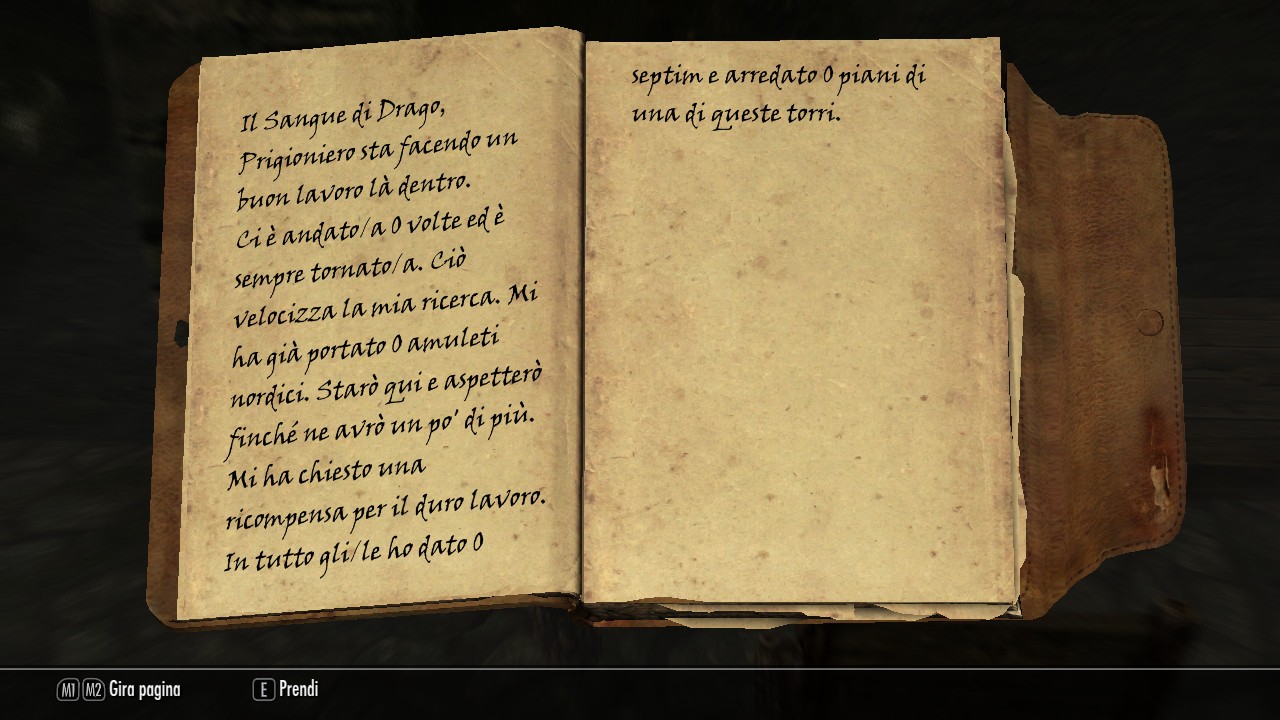 Il Sangue di Drago,
Prigioniero sta facendo un
buon lavoro là dentro.
Ci è andato/a 0 volte ed è
sempre tornato/a. Ciò
velocizza la mia ricerca. Mi
ha già portato 0 amuleti
nordici. Starò qui e aspetterò
finché ne avrò un po' di più.
Mi ha chiesto una
ricompensa per il duro lavoro.
In tutto gli/le ho dato 0
septim e arredato 0 piani di
una di queste torri.
M1 M2 Gira pagina
E Prendi